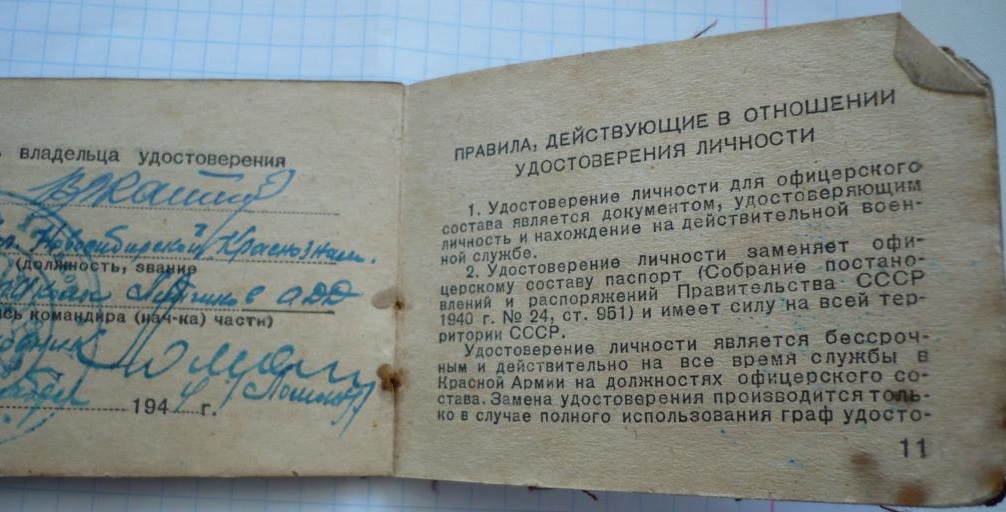 владельца удостоверения
Новосибирской Краснознам.
(должность, звание
АДД
командира (нач-ка) части)
1944 г.
ПРАВИЛА, ДЕЙСТВУЮЩИЕ В ОТНОШЕНИИ
УДОСТОВЕРЕНИЯ ЛИЧНОСТИ
1. Удостоверение личности для офицерского
состава является документом, удостоверяющим
личность и нахождение на действительной воен-
ной службе.
2. Удостоверение личности заменяет офи-
церскому составу паспорт (Собрание постано-
влений и распоряжений Правительства СССР
1940 г. № 24, ст. 951) и имеет силу на всей тер-
ритории СССР.
Удостоверение личности является бессроч-
ным и действительно на все время службы в
Красной Армии на должностях офицерского со-
става. Замена удостоверения производится толь-
ко в случае полного использования граф удосто-
11